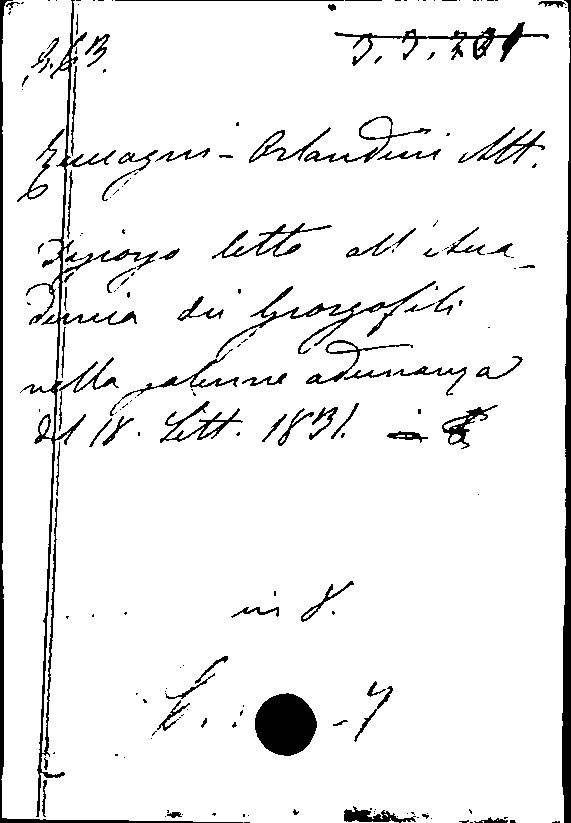 3.3.
Zuccagni-Orlandini Att.
Discorso letto all'Acca-
demia dei Georgofili
nella solenne adunanza
del 18. Sett. 1831.
in 8.